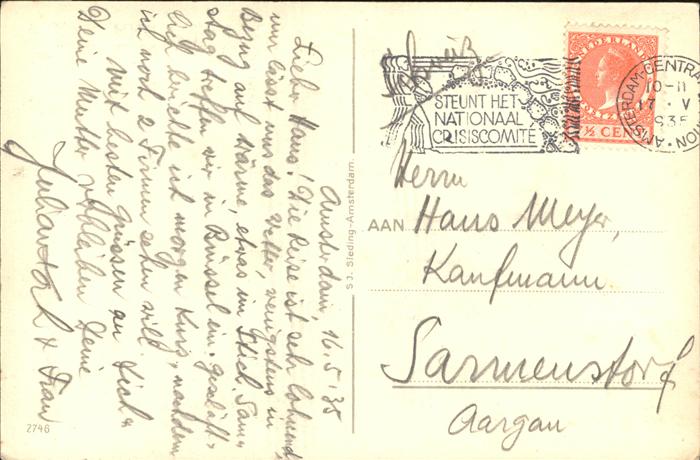 Amsterdam, 16.5.35
Lieber Hans! Die Reise ist sehr lohnend,
nur lässt uns das Wetter, wenigstens in
Bezug auf Wärme, etwas im Stich. Sams-
tag treffen wir in Brüssel ein. Geschäft-
lich beendete ich morgen Kurs, nachdem
ich noch 2 Firmen sehen will.
Mit besten Grüssen an Dich &
Deine Mutter verbleiben Deine
& Frau
2746
S.J. Sleding-Amsterdam.
Schweiz
STEUNT HET
NATIONAAL
CRISISCOMITE
NEDERLAND
7½ CENT
AMSTERDAM-CENTRAAL STATION
10-11
17 · V
1935
Herrn
AAN Hans Meyer,
Kaufmann
Sarmenstorf
Aargau